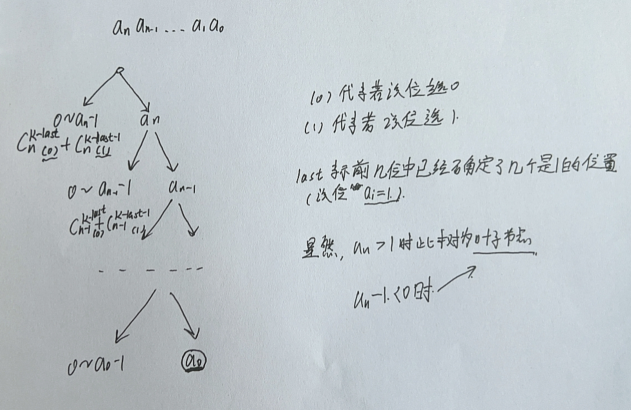 aₙ aₙ₋₁ ... a₁ a₀
0~aₙ-1
aₙ
Cₙ^(k-last) (0) + Cₙ^(k-last-1) (1)
0~aₙ₋₁-1
aₙ₋₁
Cₙ₋₁^(k-last) (0) + Cₙ₋₁^(k-last-1) (1)
0~a₀-1
a₀
(0) 代表若该位选0
(1) 代表若该位选1.
last 表示前几位中已经确定了几个是1的位置
(该位 aᵢ=1).
显然, aₙ>1时 此时为叶子节点
aₙ-1<0时